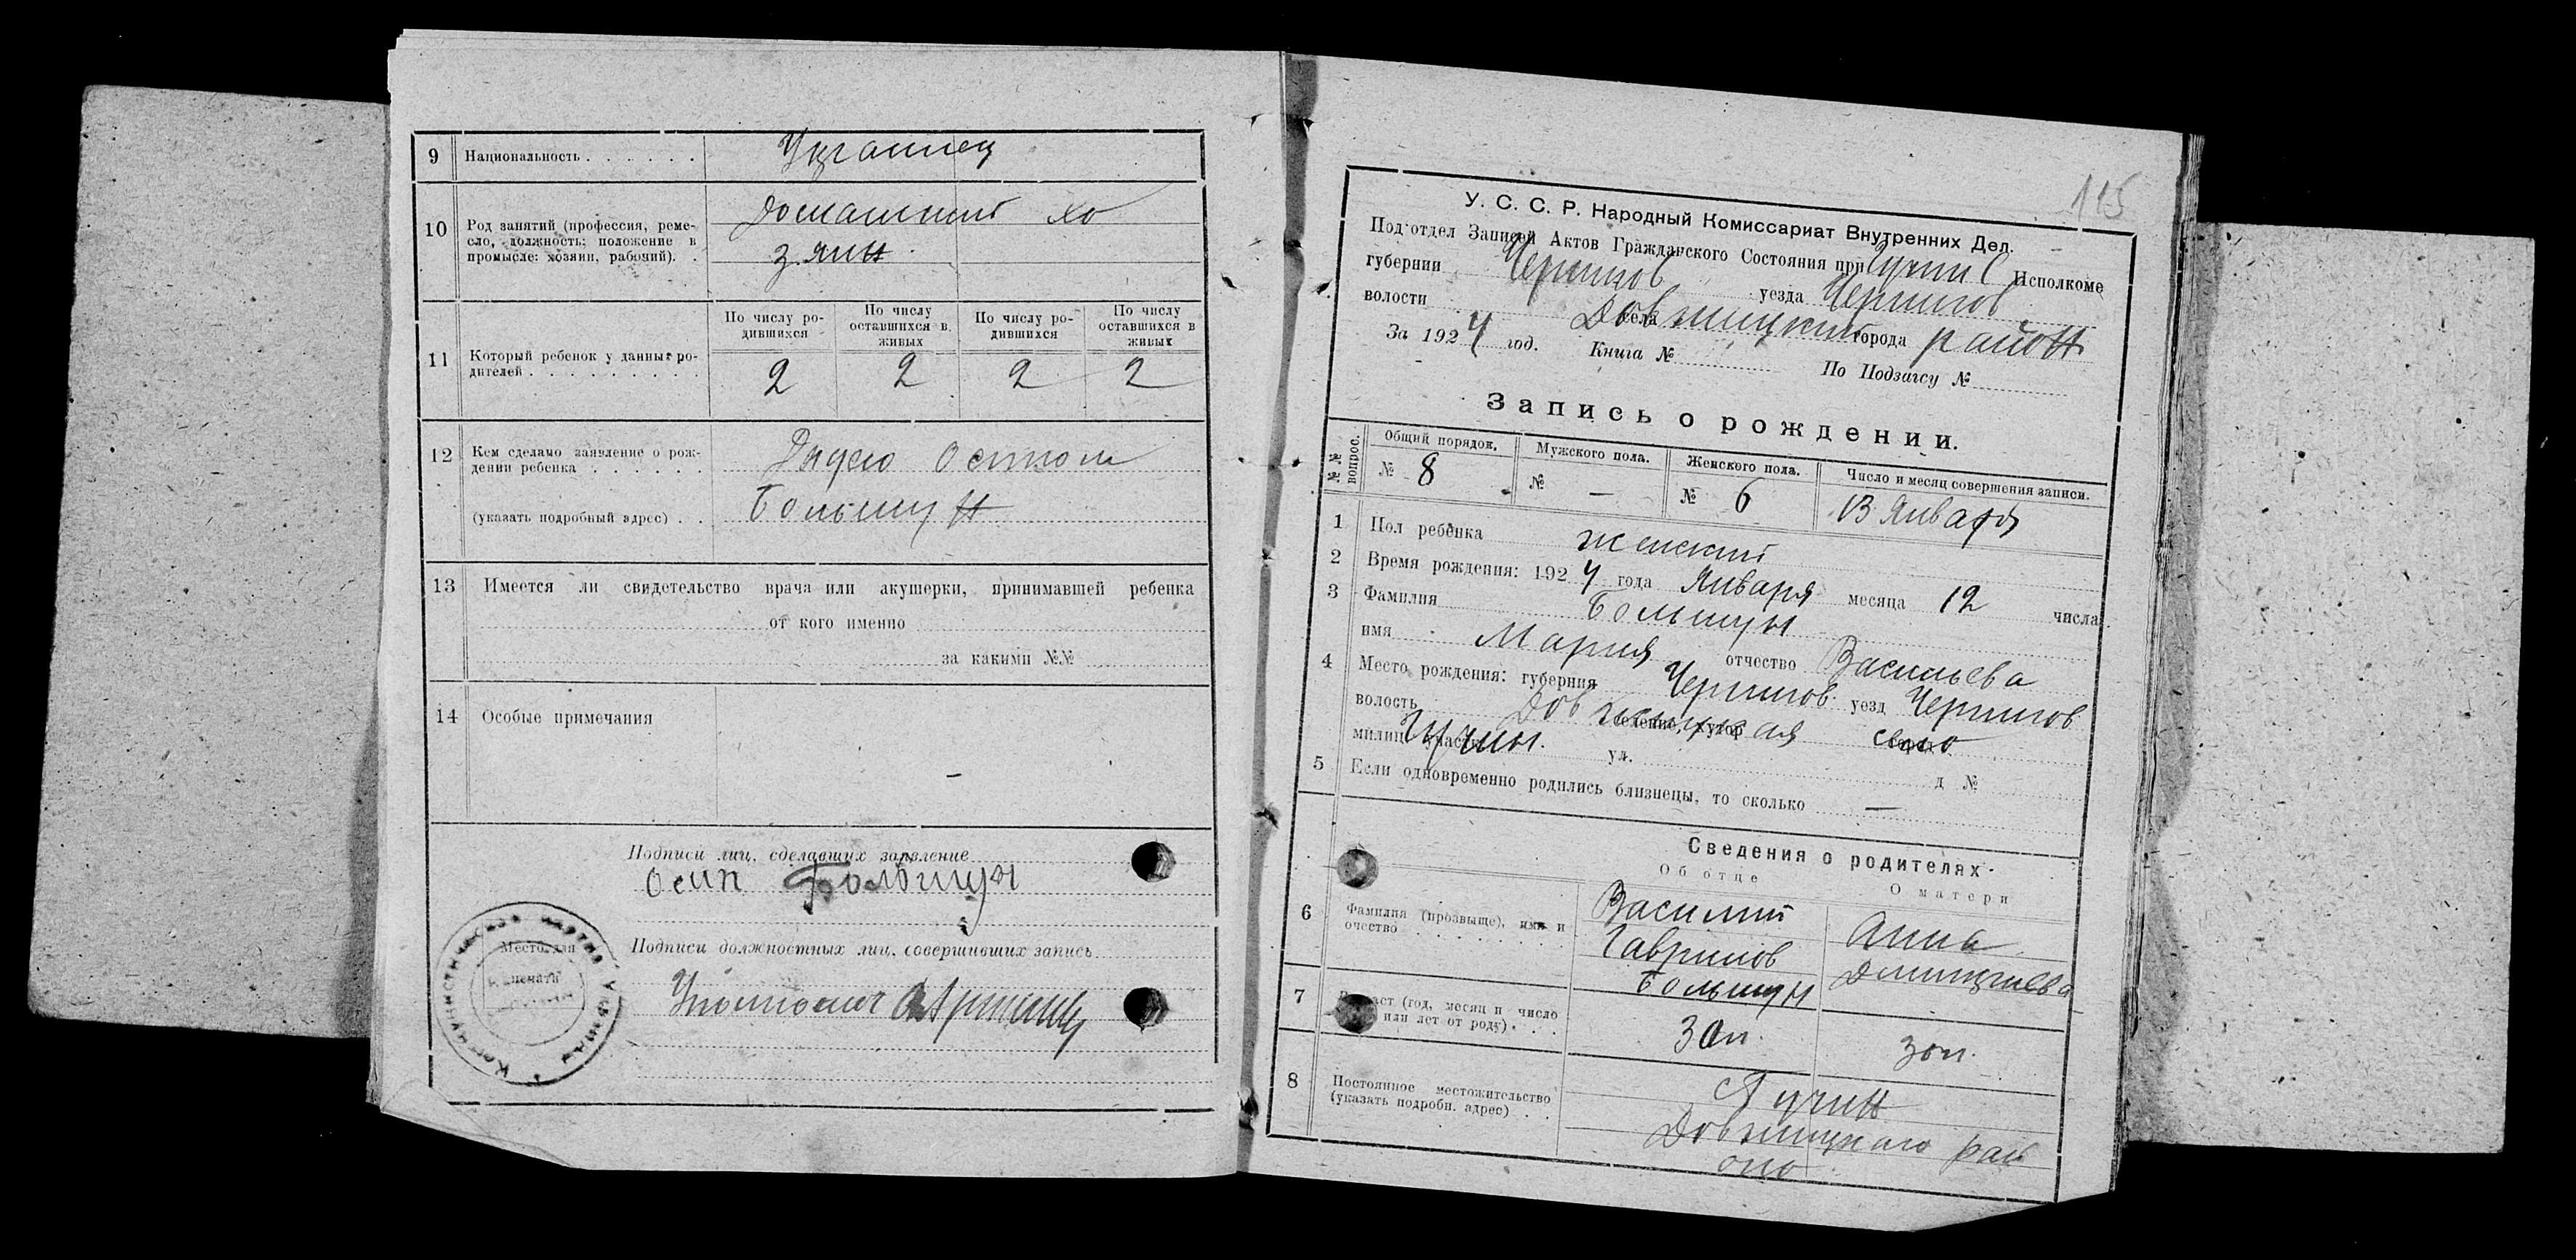 9 Национальность . . . . . . Украинец
10 Род занятий (профессия, реме-
сло, должность; положение в
промысле: хозяин, рабочий). .
Домашний хо
зяин
По числу ро-
дившихся
По числу
оставшихся в
живых
По числу ро-
дившихся
По числу
оставшихся в
живых
11 Который ребенок у данных ро-
дителей . . . . . . . . .
2 2 2 2
12 Кем сделано заявление о рож-
дении ребенка . . . . . .
(указать подробный адрес) . .
Большун
13 Имеется ли свидетельство врача или акушерки, принимавшей ребенка
от кого именно
за какими №№
14 Особые примечания
—
Подписи лиц, сделавших заявление
Осип Большун
Место для
печати
Подписи должностных лиц, совершивших запись
115
У. С. С. Р. Народный Комиссариат Внутренних Дел.
Под'отдел Записей Актов Гражданского Состояния при Исполкоме
губернии Чернигов уезда Чернигов
волости села города район
За 1924 год. Книга № По Подзагсу №
Запись о рождении.
№ №
вопрос.
Общий порядок.
№ 8
Мужского пола.
№ —
Женского пола.
№ 6
Число и месяц совершения записи.
13 Января
1 Пол ребенка женский
2 Время рождения: 1924 года Января месяца 12 числа
3 Фамилия Большун
имя Мария отчество Васильева
4 Место рождения: губерния Чернигов уезд Чернигов
волость селение, хутор село
милиц. участ. Гучин. ул. д №
5 Если одновременно родились близнецы, то сколько —
Сведения о родителях
Об отце
О матери
6 Фамилия (прозвище), имя и
очество . . . . . . . .
Василий
Гаврилов
Большун
Анна
7 Возраст (год, месяц и число
или лет от роду) . . .
30л.
30л.
8 Постоянное местожительство
(указать подробн. адрес) . .
Гучин